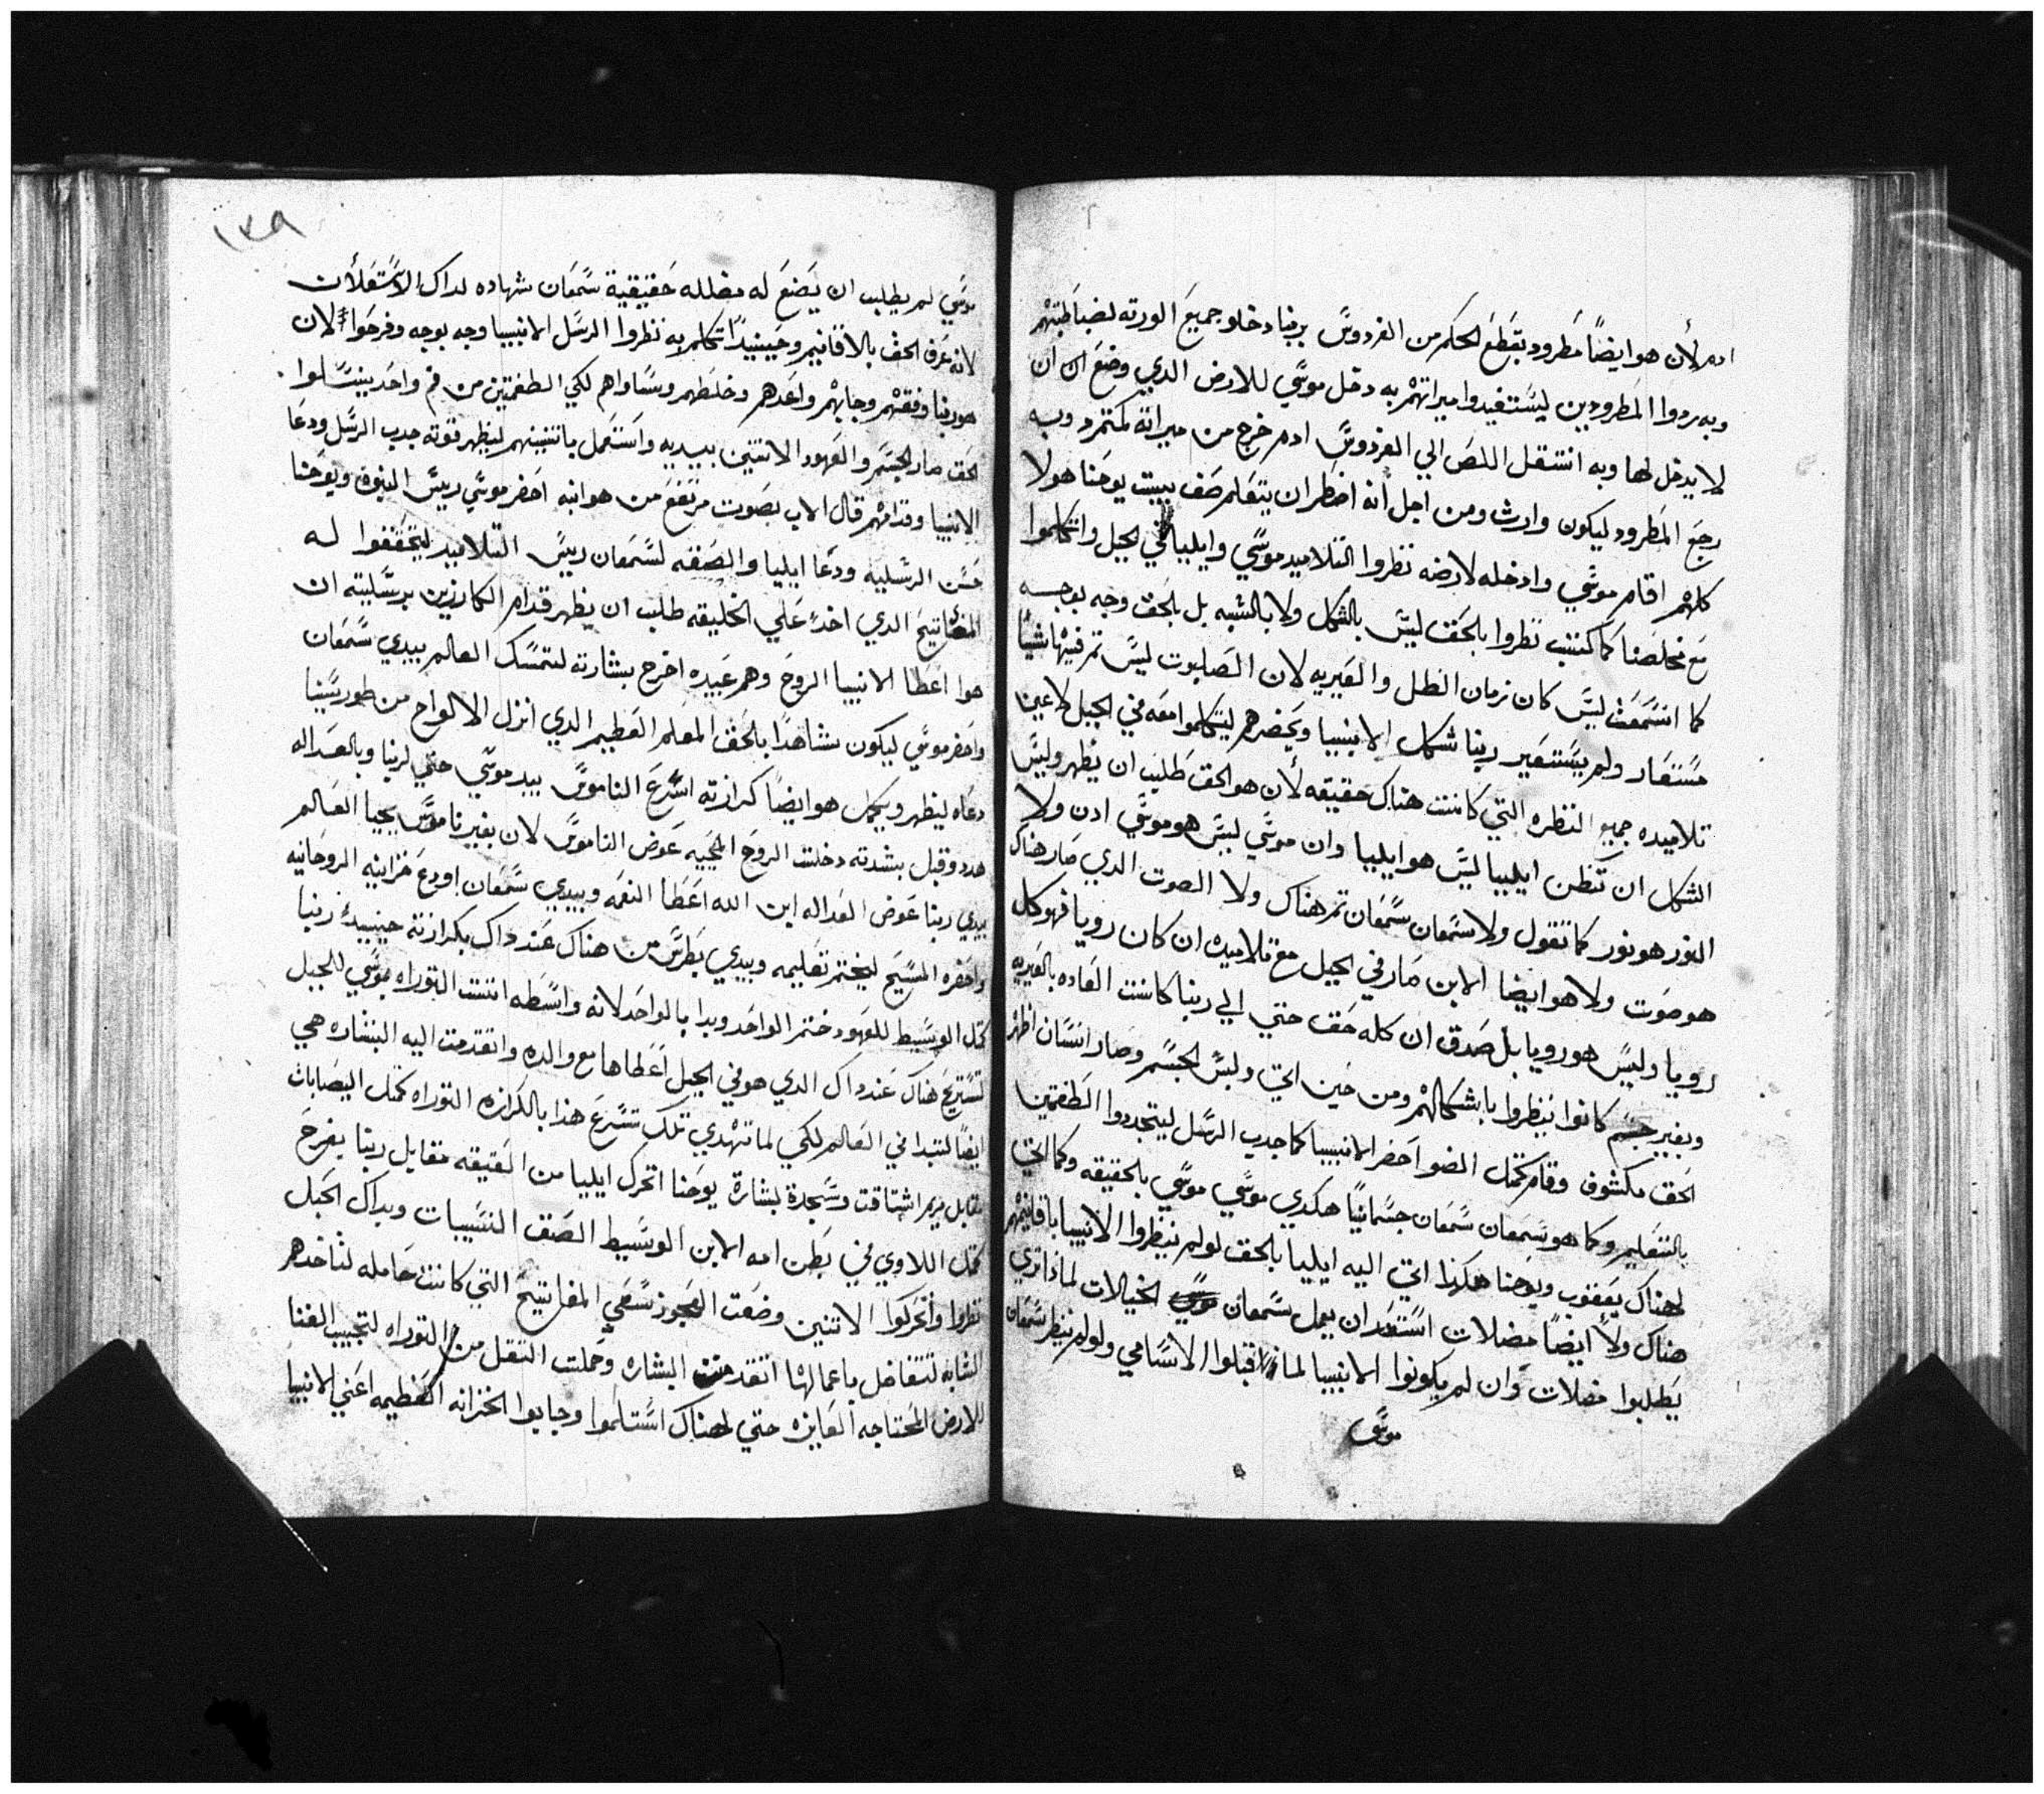 ادم لأن هو ايضاً مطرود بقطع الحكم من الفردوس بربنا دخلو جميع الورته لضباطتهم
وبه ردوا المطرودين ليستفيدوا ميراتهم به دخل موسي للارض الدي وضع ان
لا يدخل لها وبه انتقل اللص الي الفردوس ادم خرج من ميراته كمتمرد وبه
رجع المطرود ليكون وارث ومن اجل انه اضطر ان يتعلم صف ببيت يوحنا هولا
كلهم اقام موسي وادخله لارضه نظروا التلاميد موسي وايليا في الجبل واتكلموا
مع مخلصنا كما كتب نظروا بالحق ليس بالشكل ولا بالشبه بل بالحق وجه بوجه
كما انسمعت ليس كان زمان الظل والغيريه لان الصلبوت ليس تم فيها شياً
مستعار ولم يستعير ربنا شكل الانبيا ويحضرهم ليتكلموا معه في الجبل لاعين
تلاميده جميع النظره التي كانت هناك حقيقه لأن هو الحق طلب ان يظهر وليس
الشكل ان تظن ايليا ليس هو ايليا وان موسي ليس هو موسي ادن ولا
النور هو نور كما تقول ولا سمعان سمعان تم هناك ولا الصوت الدي صار هناك
هو صوت ولا هو ايضا الابن صار في الجبل مع تلاميده ان كان رويا فهو كل
رويا وليس هو رويا بل صدق ان كله حق حتي الي ربنا كانت العاده بالغيريه
وبغير جسم كانوا ينظروا باشكالهم ومن حين اتي ولبس الجسم وصار انسان اظهر
الحق مكشوف وقام كمل الضو احضر الانبيا كما جدب الرسل ليتجددوا الطغمتين
بالتعليم وكما هو سمعان سمعان جسمانياً هكدي موسي موسي بالحقيقه وكما اتي
لهناك يعقوب ويوحنا هكذا اتي اليه ايليا بالحق لو لم ينظروا الانبيا باقانيمهم
هناك ولا ايضاً مضلات استعد ان يعمل سمعان الخيالات لماذا تري
يطلبوا مضلات وان لم يكونوا الانبيا لماذا قبلوا الاسامي ولو لم ينظر سمعان
موسي
١٣٩
موسي لم يطلب ان يضع له مضلله حقيقية سمعان شهاده لداك الاستعلان
لانه عرف الحق بالاقانيم وحينيداً تكلم به نظروا الرسل الانبيا وجه بوجه وفرحوا لان
هو ربنا وفقهم وجابهم واعدهم وخلطهم وساواهم لكي الطغمتين من فم واحد ينسلوا
الحق صار الجسم والعهود الاتنين بيديه واستعمل باتنينهم ليظهر قوته جدب الرسل ودعا
الانبيا وقدامهم قال الاب بصوت مرتفع من هو ابنه احضر موسي رييس النبوه ويوحنا
حسن الرسليه ودعا ايليا والصفه لسمعان رييس التلاميد ليتحققوا له
المفاتيح الدي اخد علي الخليقه طلب ان يظهر قدام الكارزين برسليته ان
هوا اعطا الانبيا الروح وهم عبيده اخرج بشارته لتمسك العالم بيدي سمعان
واحضر موسي ليكون شاهداً بالحق المعلم العظيم الدي انزل الالواح من طور سينا
دعاه لينظر ويكمل هو ايضاً كرازته اشرع الناموس بيد موسي حتي لربنا وبالعداله
هدد وقبل بشدته دخلت الروح المحييه عوض الناموس لان بغير ناموس يحيا العالم
بيدي ربنا عوض العداله ابن الله اعطا النعمه وبيدي سمعان اودع خزاينه الروحانيه
واحضره المسيح ليختم تعليمه وبيدي بطرس من هناك عند داك بكرازته حينيدٍ ربنا
كمل الوسيط للعهود ختم الواحد وبدا بالواحد لانه واسطه اتت التوراه بموسي للجبل
لتستريح هناك عند داك الدي هو في الجبل اعطاها مع والده واتقدمت اليه البشاره هي
ايضاً لتبدا في العالم لكي لما تهدي تلك تشرع هذا بالكرازه التوراه كمثل اليصابات
مقابل مريم اشتاقت وسجدة لبشارة يوحنا اتحرك ايليا من العتيقه مقابل ربنا يفرح
كمثل اللاوي في بطن امه الابن الوسيط الصف النسيبات وبداك الجبل
نظروا واتحركوا الاتنين وضعت العجوز المفاتيح التي كانت حامله لتاخدهم
الشابه لتتفاضل باعمالها اتقدمت البشاره وحملت التقل من التوراه لتجيب الغنا
للارض المحتاجه العايزه حتي لهناك استلموا وجابوا الخزانه العظيمه اعني الانبيا